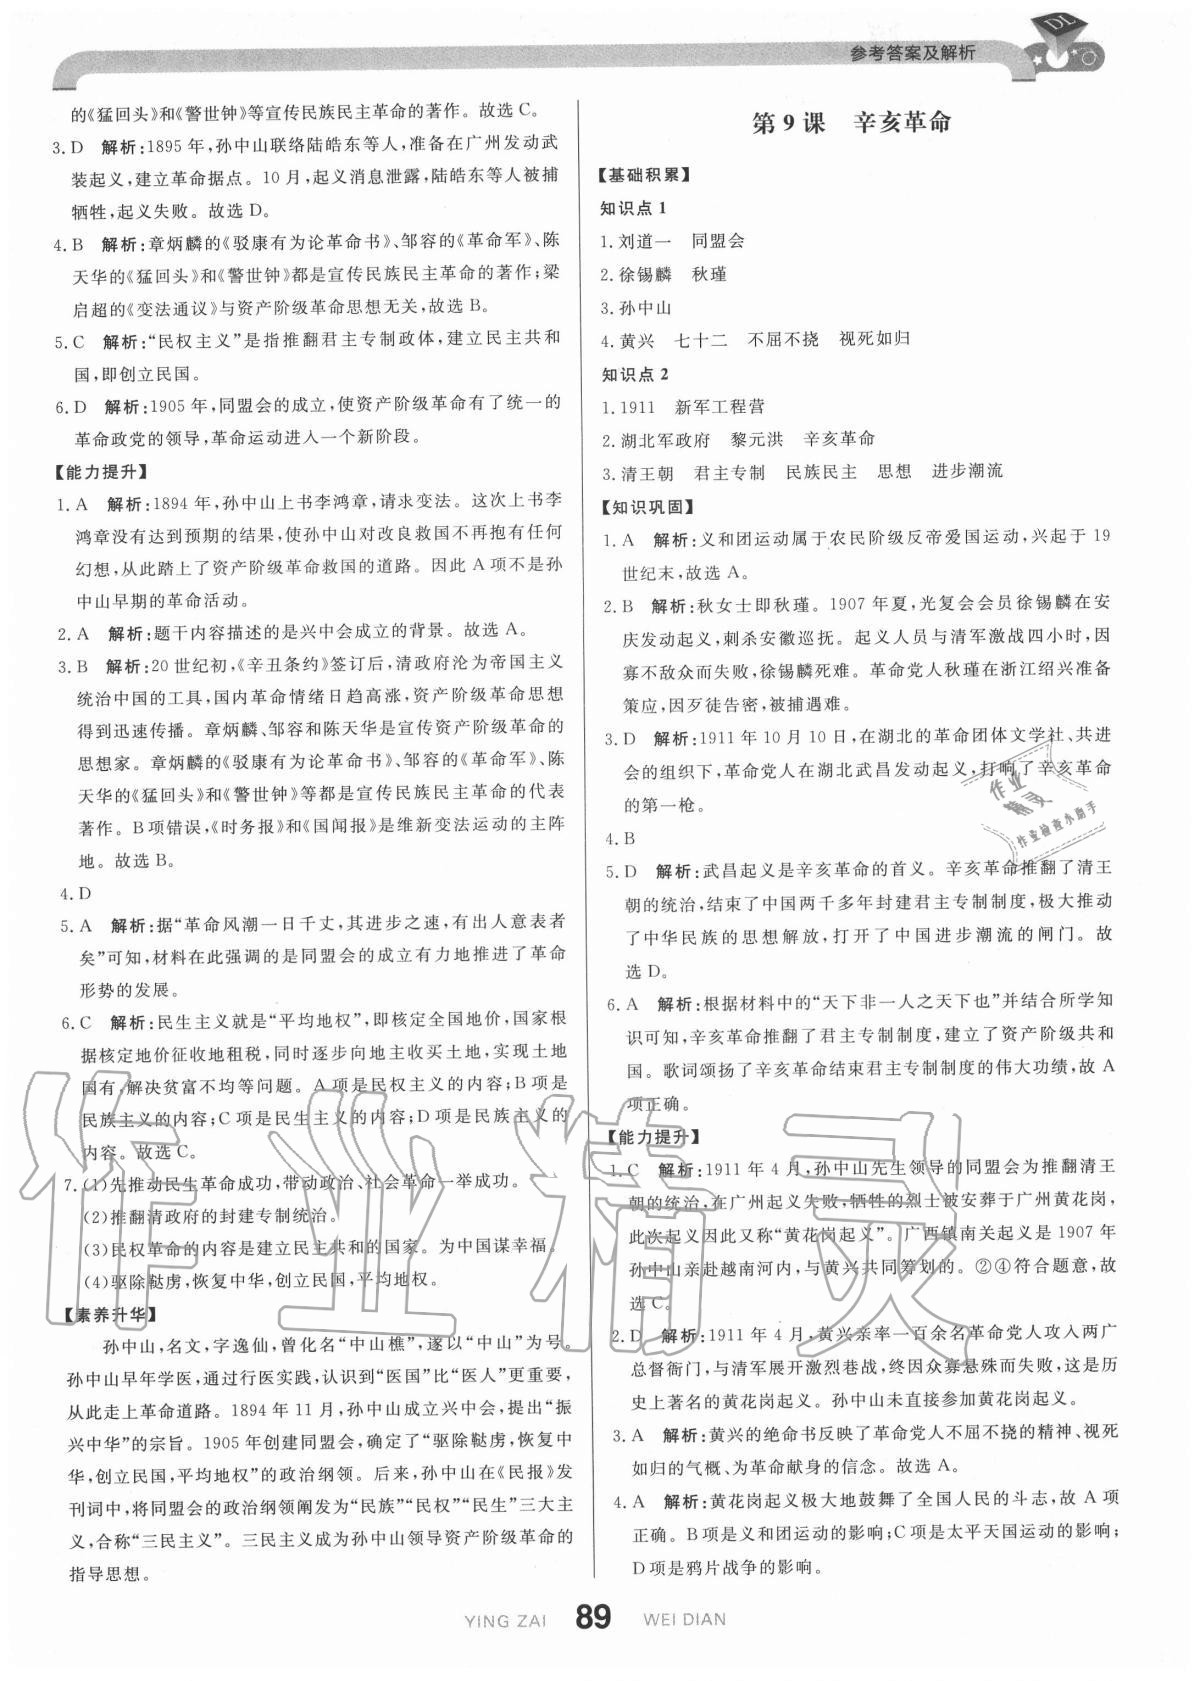 参考答案及解析
DL
的《猛回头》和《警世钟》等宣传民族民主革命的著作。故选C。
3. D　解析:1895年,孙中山联络陆皓东等人,准备在广州发动武
装起义,建立革命据点。10月,起义消息泄露,陆皓东等人被捕
牺牲,起义失败。故选D。
4. B　解析:章炳麟的《驳康有为论革命书》、邹容的《革命军》、陈
天华的《猛回头》和《警世钟》都是宣传民族民主革命的著作;梁
启超的《变法通议》与资产阶级革命思想无关,故选B。
5. C　解析:“民权主义”是指推翻君主专制政体,建立民主共和
国,即创立民国。
6. D　解析:1905年,同盟会的成立,使资产阶级革命有了统一的
革命政党的领导,革命运动进入一个新阶段。
【能力提升】
1. A　解析:1894年,孙中山上书李鸿章,请求变法。这次上书李
鸿章没有达到预期的结果,使孙中山对改良救国不再抱有任何
幻想,从此踏上了资产阶级革命救国的道路。因此A项不是孙
中山早期的革命活动。
2. A　解析:题干内容描述的是兴中会成立的背景。故选A。
3. B　解析:20世纪初,《辛丑条约》签订后,清政府沦为帝国主义
统治中国的工具,国内革命情绪日趋高涨,资产阶级革命思想
得到迅速传播。章炳麟、邹容和陈天华是宣传资产阶级革命的
思想家。章炳麟的《驳康有为论革命书》、邹容的《革命军》、陈
天华的《猛回头》和《警世钟》等都是宣传民族民主革命的代表
著作。B项错误,《时务报》和《国闻报》是维新变法运动的主阵
地。故选B。
4. D
5. A　解析:据“革命风潮一日千丈,其进步之速,有出人意表者
矣”可知,材料在此强调的是同盟会的成立有力地推进了革命
形势的发展。
6. C　解析:民生主义就是“平均地权”,即核定全国地价,国家根
据核定地价征收地租税,同时逐步向地主收买土地,实现土地
国有,解决贫富不均等问题。A项是民权主义的内容;B项是
民族主义的内容;C项是民生主义的内容;D项是民族主义的
内容。故选C。
7. (1)先推动民生革命成功,带动政治、社会革命一举成功。
(2)推翻清政府的封建专制统治。
(3)民权革命的内容是建立民主共和的国家。为中国谋幸福。
(4)驱除鞑虏,恢复中华,创立民国,平均地权。
【素养升华】
孙中山,名文,字逸仙,曾化名“中山樵”,遂以“中山”为号。
孙中山早年学医,通过行医实践,认识到“医国”比“医人”更重要,
从此走上革命道路。1894年11月,孙中山成立兴中会,提出“振
兴中华”的宗旨。1905年创建同盟会,确定了“驱除鞑虏,恢复中
华,创立民国,平均地权”的政治纲领。后来,孙中山在《民报》发
刊词中,将同盟会的政治纲领阐发为“民族”“民权”“民生”三大主
义,合称“三民主义”。三民主义成为孙中山领导资产阶级革命的
指导思想。
第9课　辛亥革命
【基础积累】
知识点1
1. 刘道一　同盟会
2. 徐锡麟　秋瑾
3. 孙中山
4. 黄兴　七十二　不屈不挠　视死如归
知识点2
1. 1911　新军工程营
2. 湖北军政府　黎元洪　辛亥革命
3. 清王朝　君主专制　民族民主　思想　进步潮流
【知识巩固】
1. A　解析:义和团运动属于农民阶级反帝爱国运动,兴起于19
世纪末,故选A。
2. B　解析:秋女士即秋瑾。1907年夏,光复会会员徐锡麟在安
庆发动起义,刺杀安徽巡抚。起义人员与清军激战四小时,因
寡不敌众而失败,徐锡麟死难。革命党人秋瑾在浙江绍兴准备
策应,因歹徒告密,被捕遇难。
3. D　解析:1911年10月10日,在湖北的革命团体文学社、共进
会的组织下,革命党人在湖北武昌发动起义,打响了辛亥革命
的第一枪。
4. B
5. D　解析:武昌起义是辛亥革命的首义。辛亥革命推翻了清王
朝的统治,结束了中国两千多年封建君主专制制度,极大推动
了中华民族的思想解放,打开了中国进步潮流的闸门。故
选D。
6. A　解析:根据材料中的“天下非一人之天下也”并结合所学知
识可知,辛亥革命推翻了君主专制制度,建立了资产阶级共和
国。歌词颂扬了辛亥革命结束君主专制制度的伟大功绩,故A
项正确。
【能力提升】
1. C　解析:1911年4月,孙中山先生领导的同盟会为推翻清王
朝的统治,在广州起义失败,牺牲的烈士被安葬于广州黄花岗,
此次起义因此又称“黄花岗起义”。广西镇南关起义是1907年
孙中山亲赴越南河内,与黄兴共同筹划的。②④符合题意,故
选C。
2. D　解析:1911年4月,黄兴亲率一百余名革命党人攻入两广
总督衙门,与清军展开激烈巷战,终因众寡悬殊而失败,这是历
史上著名的黄花岗起义。孙中山未直接参加黄花岗起义。
3. A　解析:黄兴的绝命书反映了革命党人不屈不挠的精神、视死
如归的气概、为革命献身的信念。故选A。
4. A　解析:黄花岗起义极大地鼓舞了全国人民的斗志,故A项
正确。B项是义和团运动的影响;C项是太平天国运动的影响;
D项是鸦片战争的影响。
作业
精灵
作业检查小助手
作业精灵
YING ZAI 89 WEI DIAN